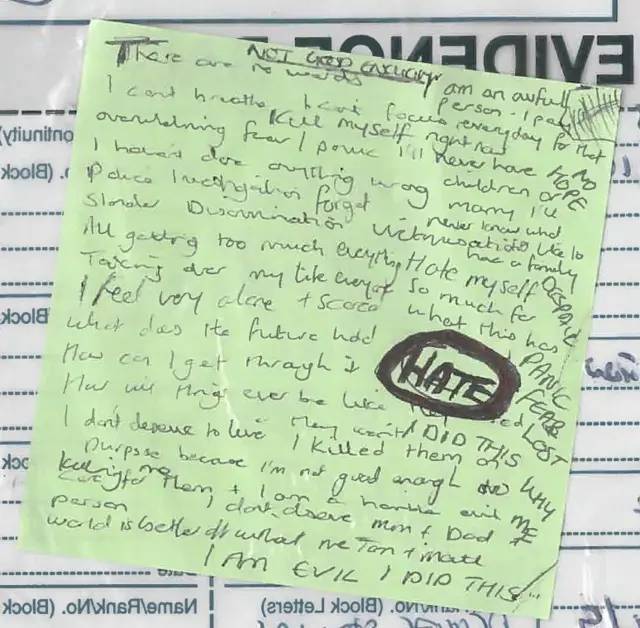 EVIDENCE
NOT GOOD ENOUGH
There are no words
I am an awful person. I pay everyday for that
I cant breathe I cant focus
Kill myself right now
NO HOPE
overwhelming fear / panic I'll never have children or
I haven't done anything wrong marry I'll
Police investigation forget never know what it's like to
Slander Discrimination Victimisation have a family
All getting too much everything Hate myself DESPAIR
Taking over my life everyone So much for
I feel very alone + scared what this has
What does the future hold
PANIC
How can I get through it
HATE
FEAR
How will things ever be like they used
LOST
They won't I DID THIS
I don't deserve to live I killed them on
purpose because I'm not good enough to
WHY ME
care for them + I am a horrible evil
killing me
person I don't deserve Mum + Dad +
world is better off without me Tom + Matt
I AM EVIL I DID THIS
(Block
(Block
Name/Rank/No. (Block
/No. (Block Letters)